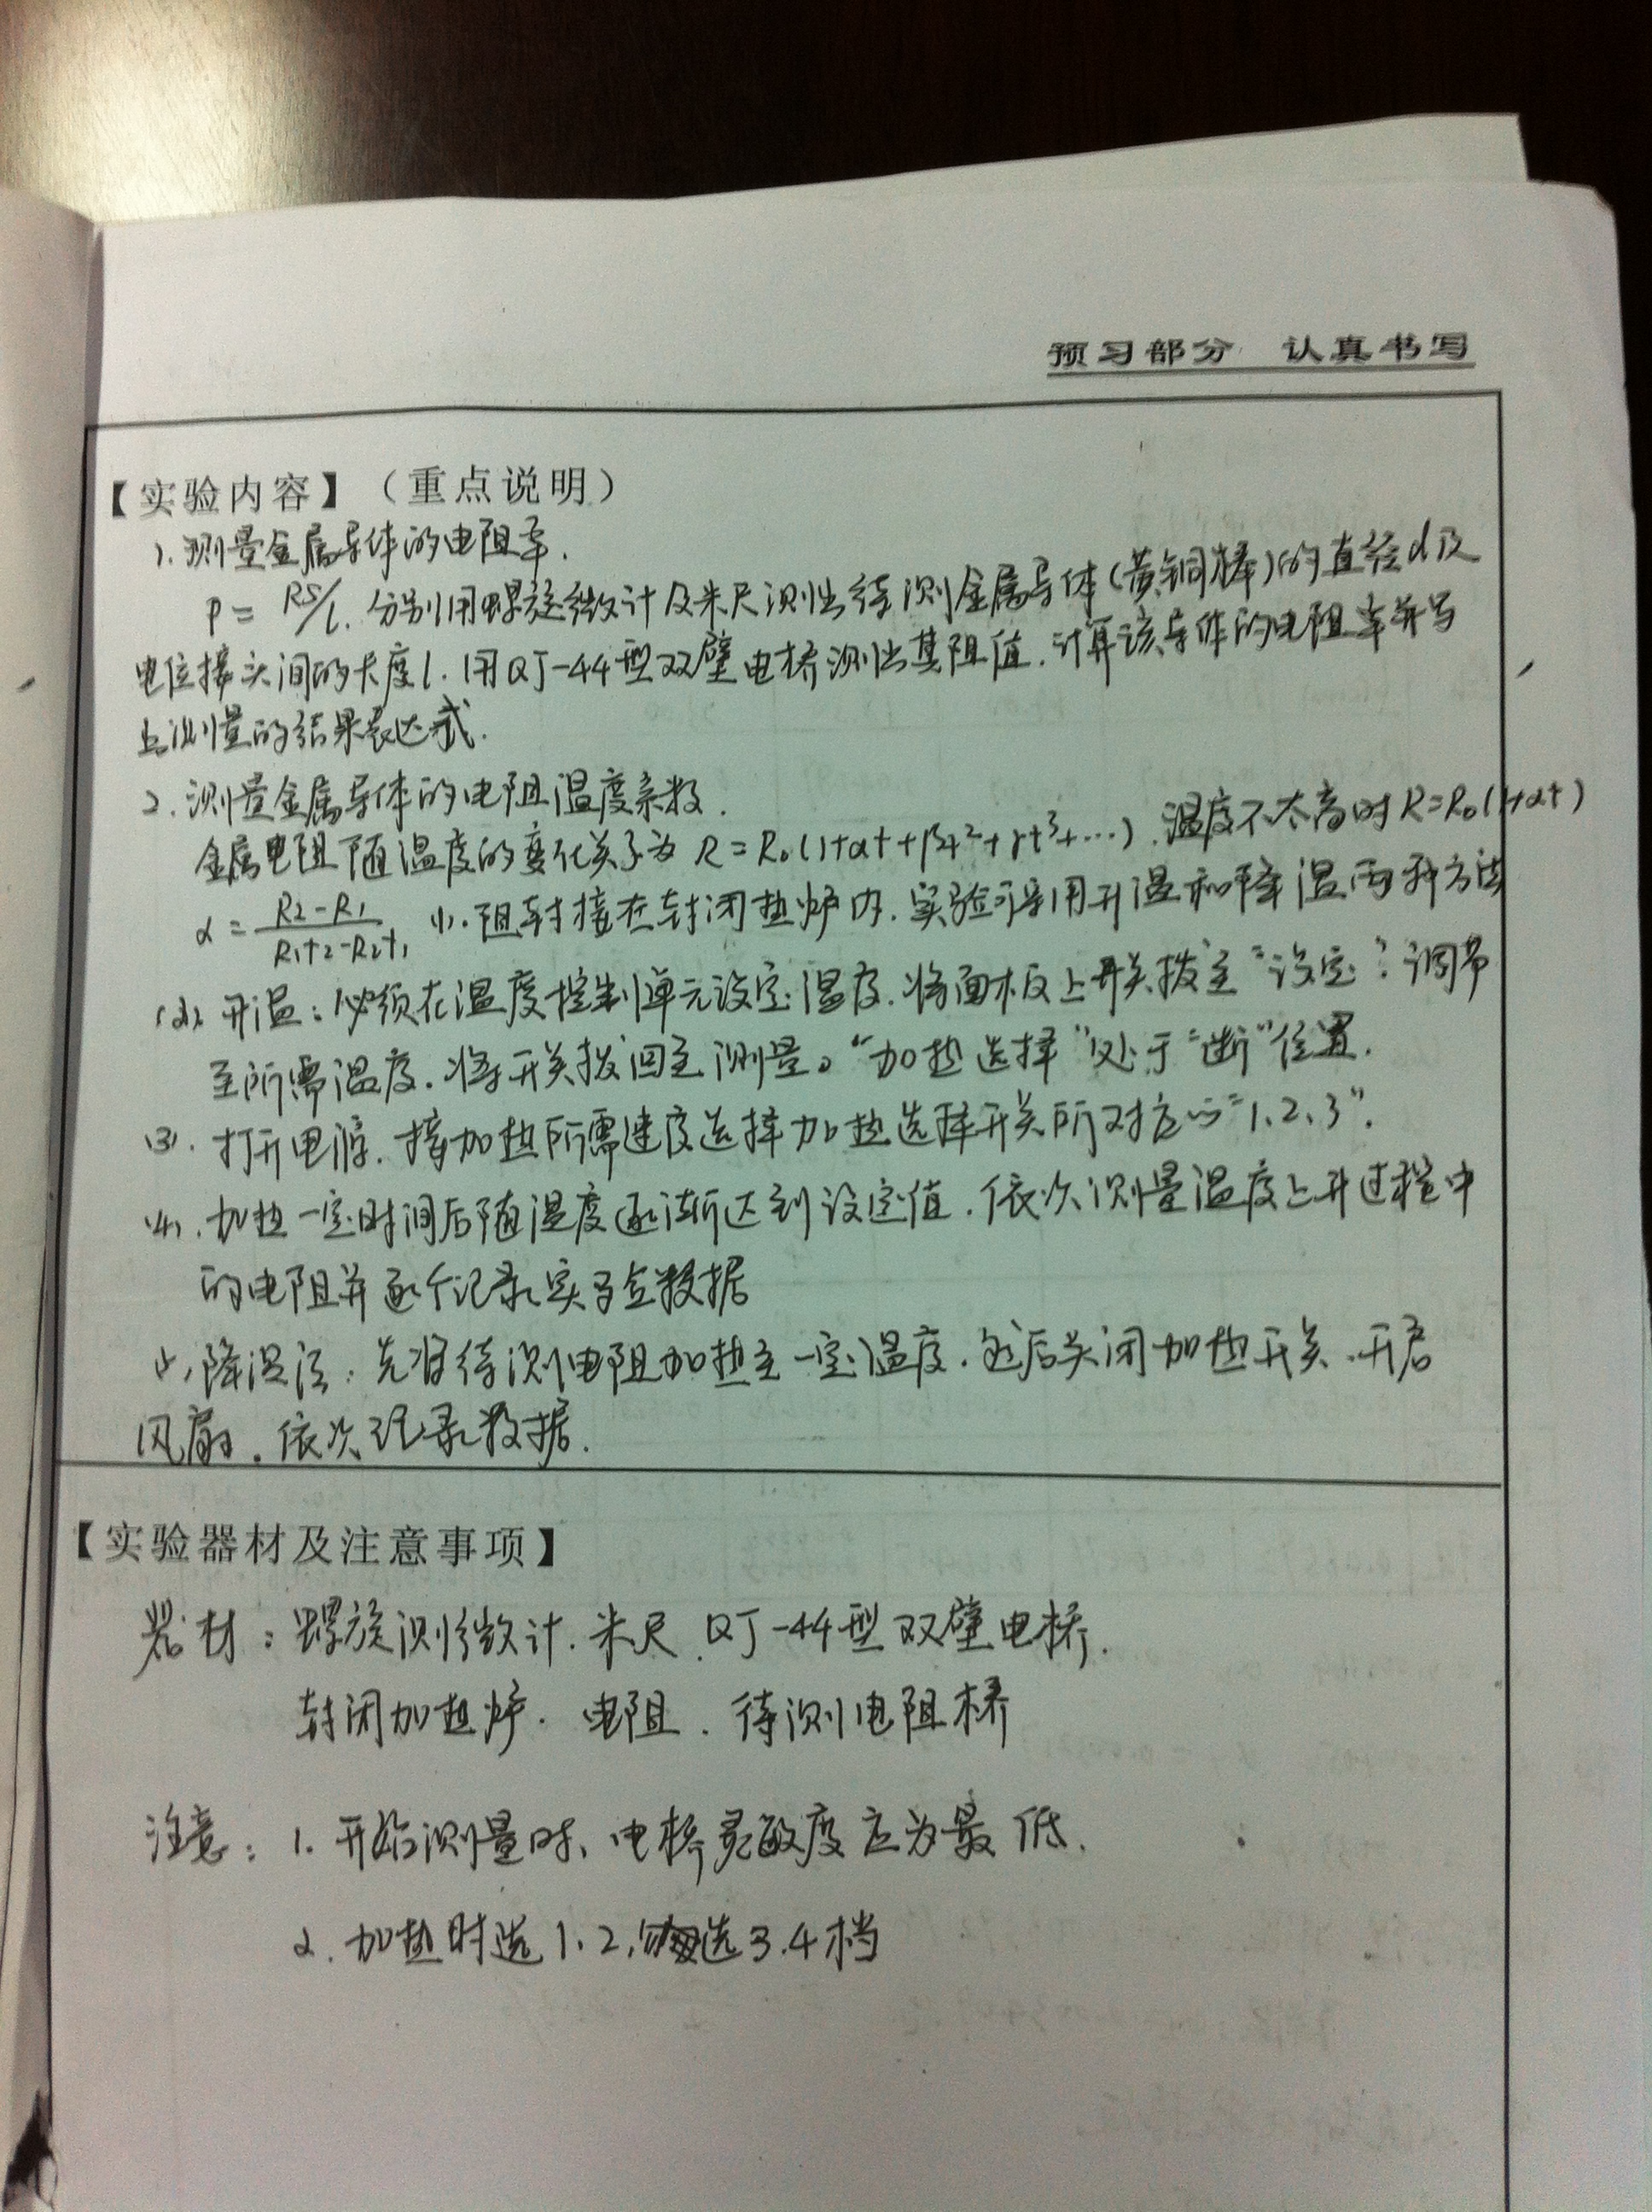 预习部分 认真书写
【实验内容】(重点说明)
1. 测量金属导体的电阻率.
ρ = RS/l. 分别用螺旋微计及米尺测出待测金属导体(黄铜棒)的直径d及
电位接头间的长度l. 用QJ-44型双壁电桥测出其阻值. 计算该导体的电阻率并写
出测量的结果表达式.
2. 测量金属导体的电阻温度系数.
金属电阻随温度的变化关系为 R=R₀(1+αt+βt²+γt³+…). 温度不太高时R=R₀(1+αt)
α = (R2-R1)/(R1t2-R2t1) (1). 阻封接在封闭热炉内. 实验可采用升温和降温两种方法
(2). 升温: 必须在温度控制单元设定温度. 将面板上开关拨至“设定”. 调节
至所需温度. 将开关拨回至测量。“加热选择”处于“断”位置.
(3). 打开电源. 按加热所需速度选择加热选择开关所对应的“1、2、3”.
(4). 加热一定时间后随温度逐渐达到设定值. 依次测量温度上升过程中
的电阻并逐个记录实验数据
(5). 降温法: 先将待测电阻加热至一定温度. 然后关闭加热开关. 开启
风扇. 依次记录数据.
【实验器材及注意事项】
器材: 螺旋测微计. 米尺. QJ-44型双壁电桥.
封闭加热炉. 电阻. 待测电阻桥
注意: 1. 开始测量时、电桥灵敏度应为最低.
2. 加热时选1、2, 选3.4档